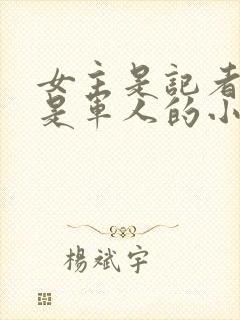 女主是記者
是軍人的小
楊斌宇